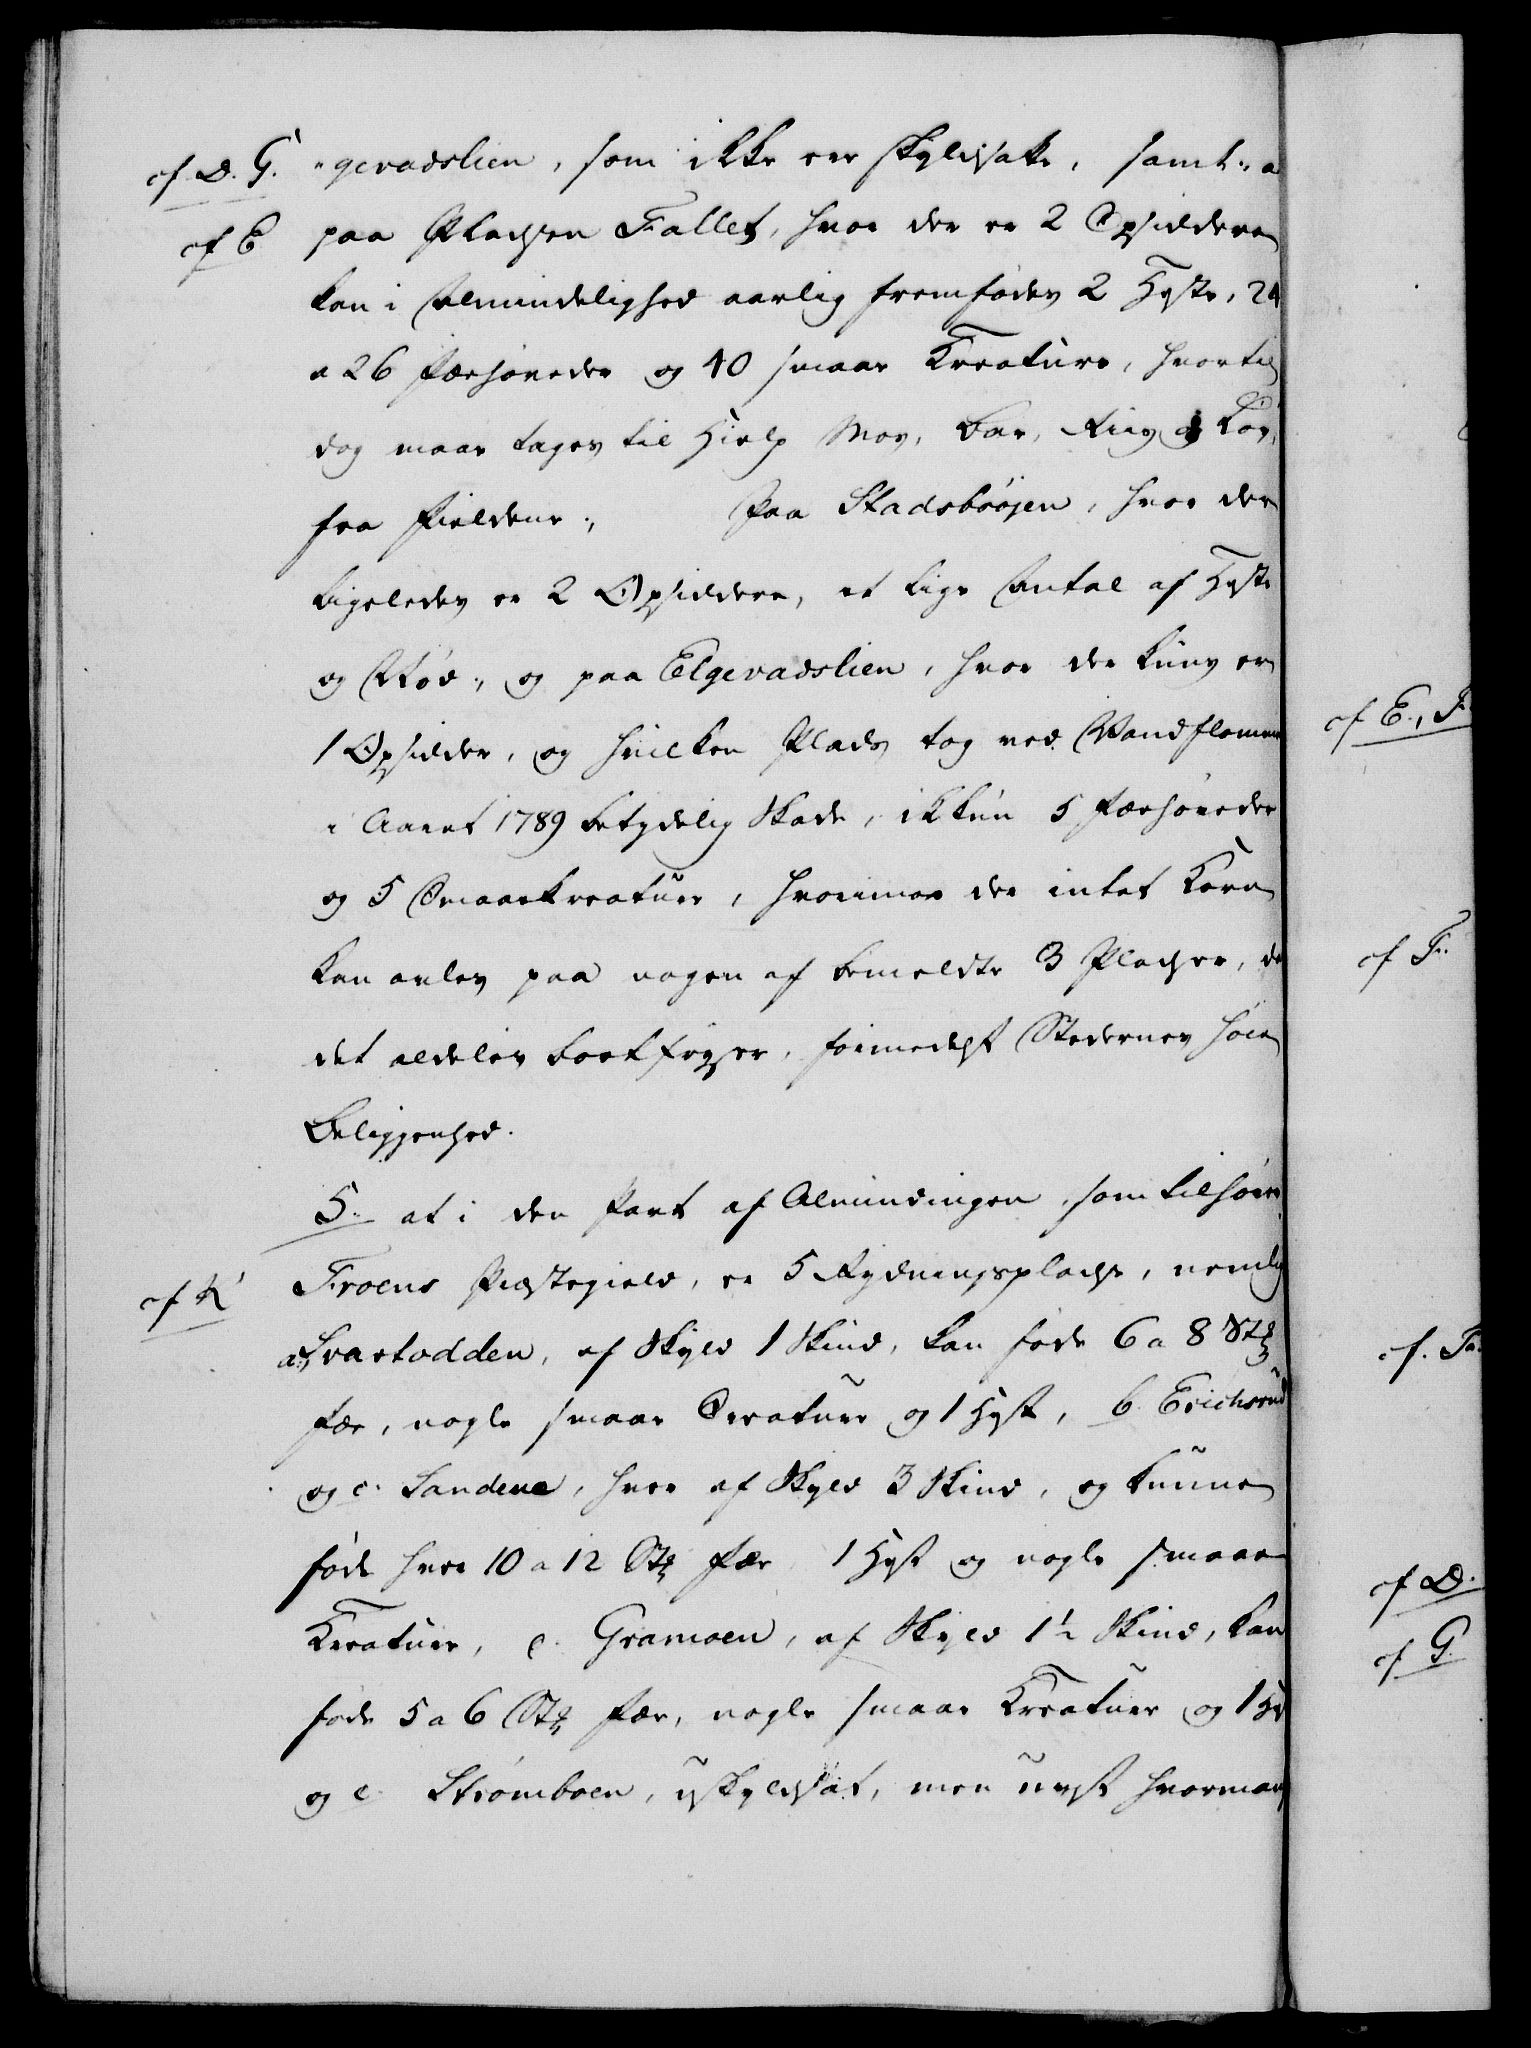 cf. D. G. "gevadslien, som ikke ere skyldsatte, samt: a
cf E paa Pladsen Fallet, hvor der er 2 Opsiddere
kan i Almindelighed aarlig fremfødes 2 Heste, 24
a 26 Fæehöveder og 40 smaae Kreature, hvortil
dog maae tages til Hielp Mos, Bar, Riis og Löv,
fra Fieldene; Paa Stadsbøöjen, hvor der
ligeledes er 2 Opsiddere, et lige Antal af Heste
og Qvæg; og paa Elgevadslien, hvor der kuns er
1 Opsidder, og hvilken Plads tog ved Vandflommen
i Aaret 1789 betydelig Skade, ikkun 5 Fæehöveder
og 5 Smaaekreature, hvorimod der intet Korn
kan avles paa nogen af bemeldte 3 Pladser, da
det aldeles bortfryser, formedelst Stedernes höie
Beliggenhed.
5. at i den Part af Almindingen, som tilhörer
cf K Froens Præstegield, er 5 Rydningspladse, nemlig
a. Svartodden, af Skyld 1 Skind, kan föde 6 a 8 Stk
Fæe, nogle smaae Creature og 1 Hest, b. Erichsrud
og c. Sandene, hver af Skyld 3 Skind, og kunne
föde hver 10 a 12 Stk Fæe 1 Hest og nogle smaae
Kreature, d. Gramoen, af Skyld 1½ Skind, kan
föde 5 a 6 Stk Fæe, nogle smaae Kreature og 1 He
og e. Strömboen, uskyldsat, men uvist hvormange
cf E., F.
cf F.
cf. F.
cf D.
cf G.